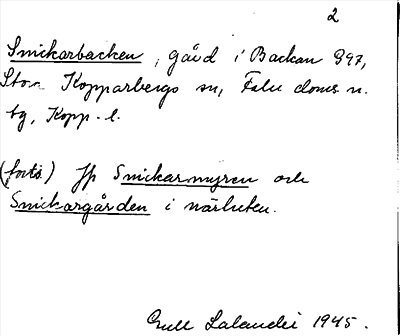 2
Snickarbacken, gård i Backan 997,
Stora Kopparbergs sn, Falu doms. n.
tg, Kopp. l.
(forts.) Jfr Snickarmyren och
Snickargården i närheten.
Gull Lalander 1945.